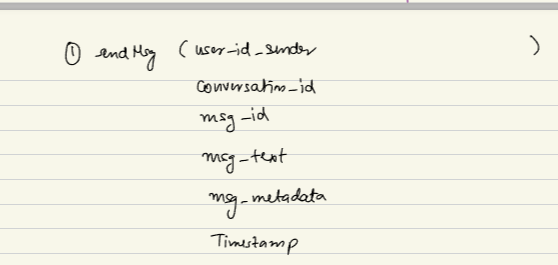 ① sendMsg ( user_id_sender )
conversation_id
msg_id
msg_text
msg_metadata
Timestamp